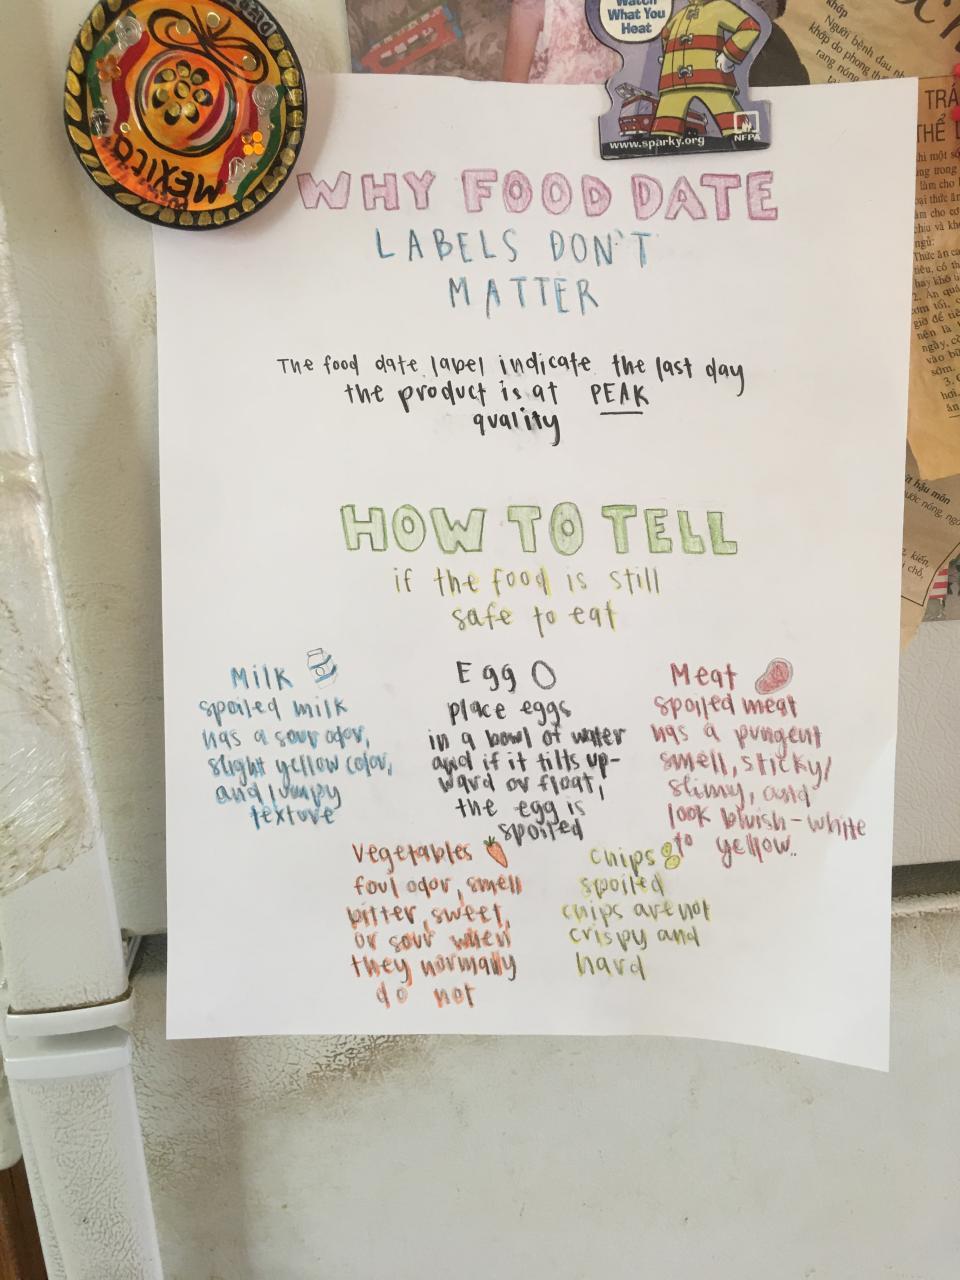 MEXICO
Watch
What You
Heat
www.sparky.org
NFPA
WHY FOOD DATE
LABELS DON'T
MATTER
The food date label indicate the last day
the product is at PEAK
quality
HOW TO TELL
if the food is still
safe to eat
Milk
spoiled milk
has a sour odor,
slight yellow color,
and lumpy
texture
Egg
place eggs
in a bowl of water
and if it tilts up-
ward or float,
the egg is
spoiled
Meat
spoiled meat
has a pungent
smell, sticky/
slimy, and
look bluish-white
to yellow.
Vegetables
foul odor, smell
bitter, sweet,
or sour when
they normally
do not
Chips
spoiled
chips are not
crispy and
hard
khớp
Người bệnh đau
khớp do phong
rang nóng
TRÁ
THỂ